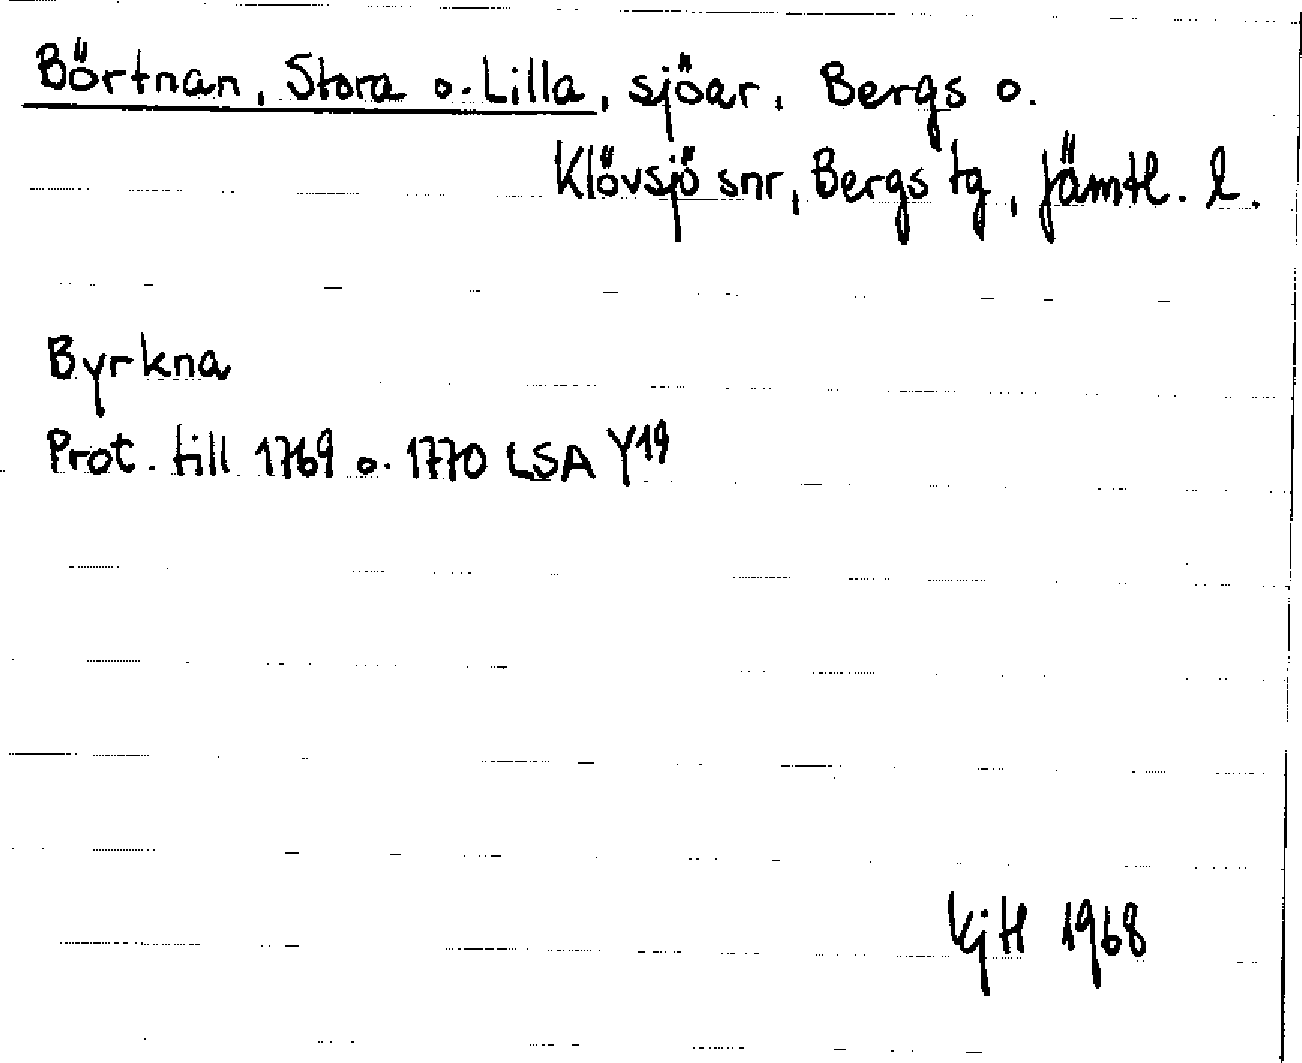 Börtnan, Stora o. Lilla, sjöar, Bergs o.
Klövsjö snr, Bergs tg, Jämtl. l.
Byrkna
Prot. till 1769 o. 1770 LSA Y19
KjH 1968